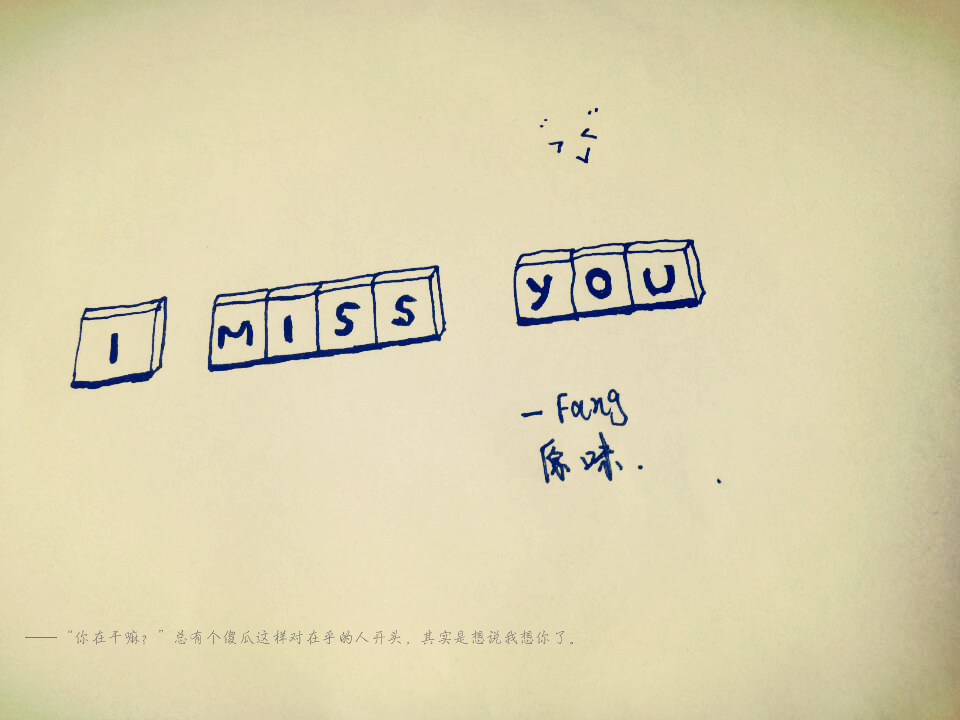 I MISS YOU
— Fang
原味.
——“你在干嘛？”总有个傻瓜这样对在乎的人开头，其实是想说我想你了。